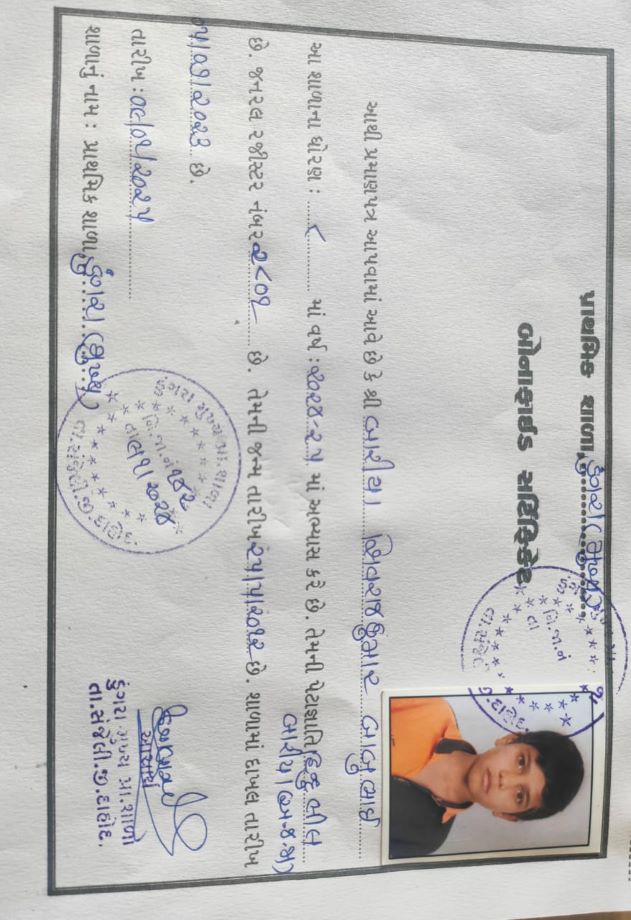 પ્રાથમિક શાળા, ડુંગરા (મુખ્ય)
બોનાફાઈડ સર્ટિફિકેટ
આથી પ્રમાણપત્ર આપવામાં આવે છે કે શ્રી બારીયા શિવરાજકુમાર બાબુભાઈ
આ શાળાના ધોરણ : ૮ માં વર્ષ : ૨૦૨૪-૨૫ માં અભ્યાસ કરે છે. તેમની પેટાજ્ઞાતિ હિન્દુ
બારીયા
છે. જનરલ રજીસ્ટર નંબર ૨૮૦૧ છે. તેમની જન્મ તારીખ ૨૫/૫/૨૦૧૨ છે. શાળામાં દાખલ તારીખ
૫/૭/૨૦૨૩ છે.
તારીખ : ૦૯/૦૫/૨૦૨૫
શાળાનું નામ : પ્રાથમિક શાળા ડુંગરા (મુખ્ય)
આચાર્ય
ડુંગરા મુખ્ય પ્રા.શાળા
તા.સંજેલી.જી.દાહોદ.